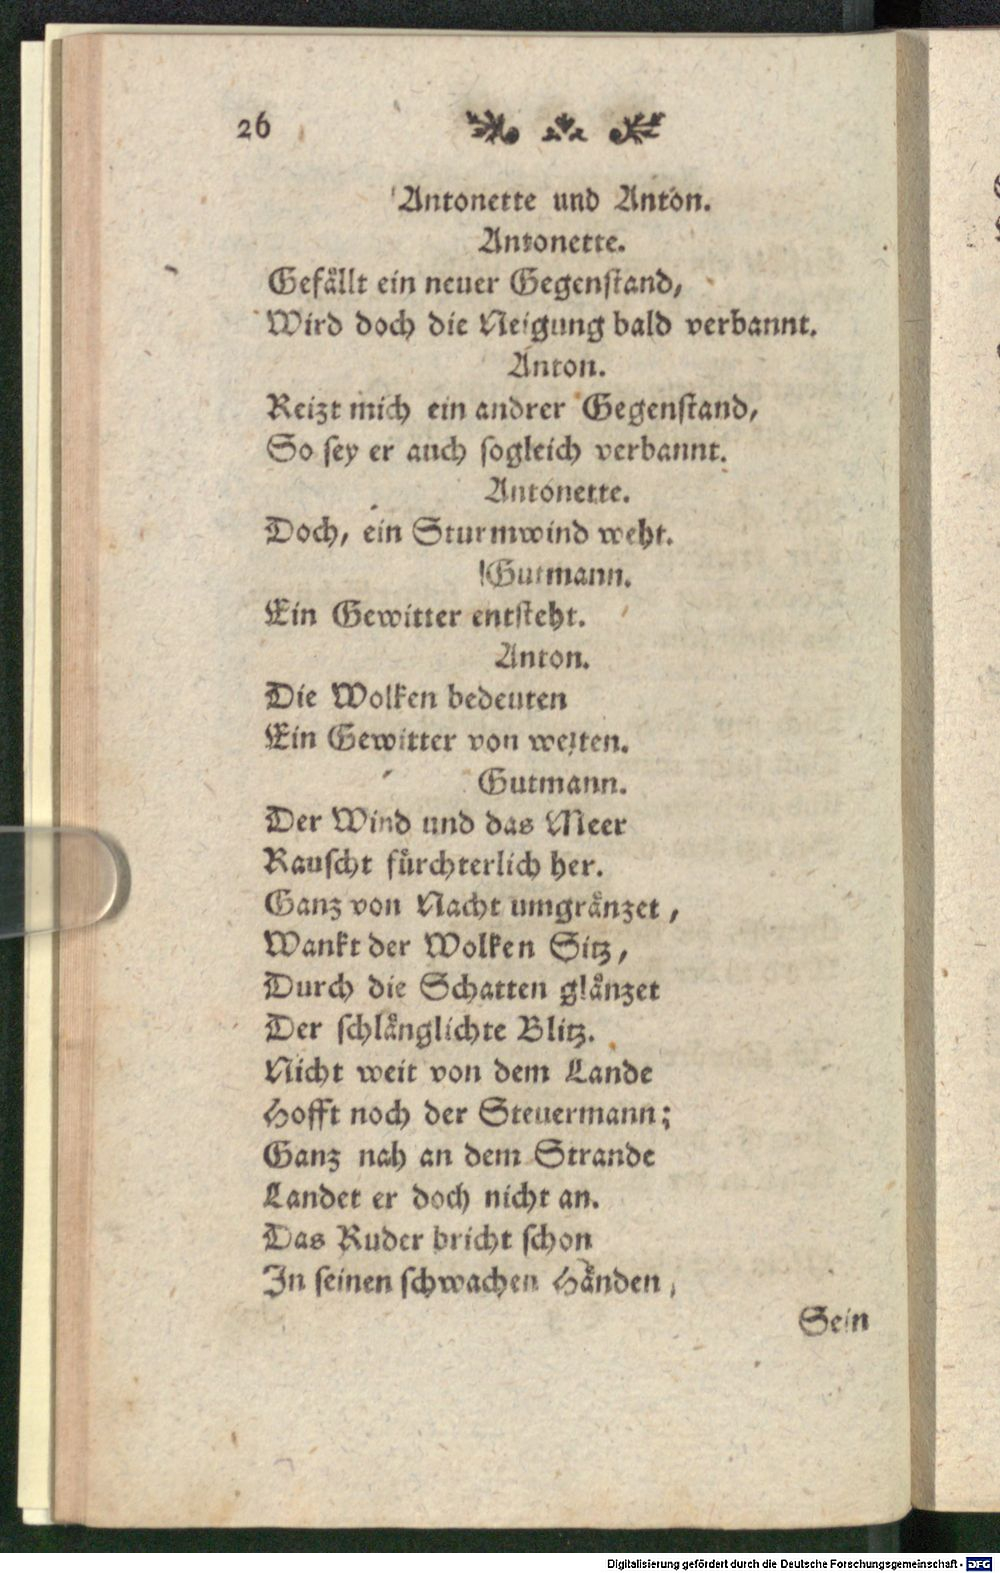 26
Antonette und Anton.
Antonette.
Gefållt ein neuer Gegenstand,
Wird doch die Neigung bald verbannt.
Anton.
Reizt mich ein andrer Gegenstand,
So sey er auch sogleich verbannt.
Antonette.
Doch, ein Sturmwind weht.
Gutmann.
Ein Gewitter entsteht.
Anton.
Die Wolken bedeuten
Ein Gewitter von weiten.
Gutmann.
Der Wind und das Meer
Rauscht fürchterlich her.
Ganz von Nacht umgrånzet,
Wankt der Wolken Sitz,
Durch die Schatten glånzet
Der schlånglichte Blitz.
Nicht weit von dem Lande
Hofft noch der Steuermann;
Ganz nah an dem Strande
Landet er doch nicht an.
Das Ruder bricht schon
In seinen schwachen Hånden,
Sein
Digitalisierung gefördert durch die Deutsche Forschungsgemeinschaft - DFG